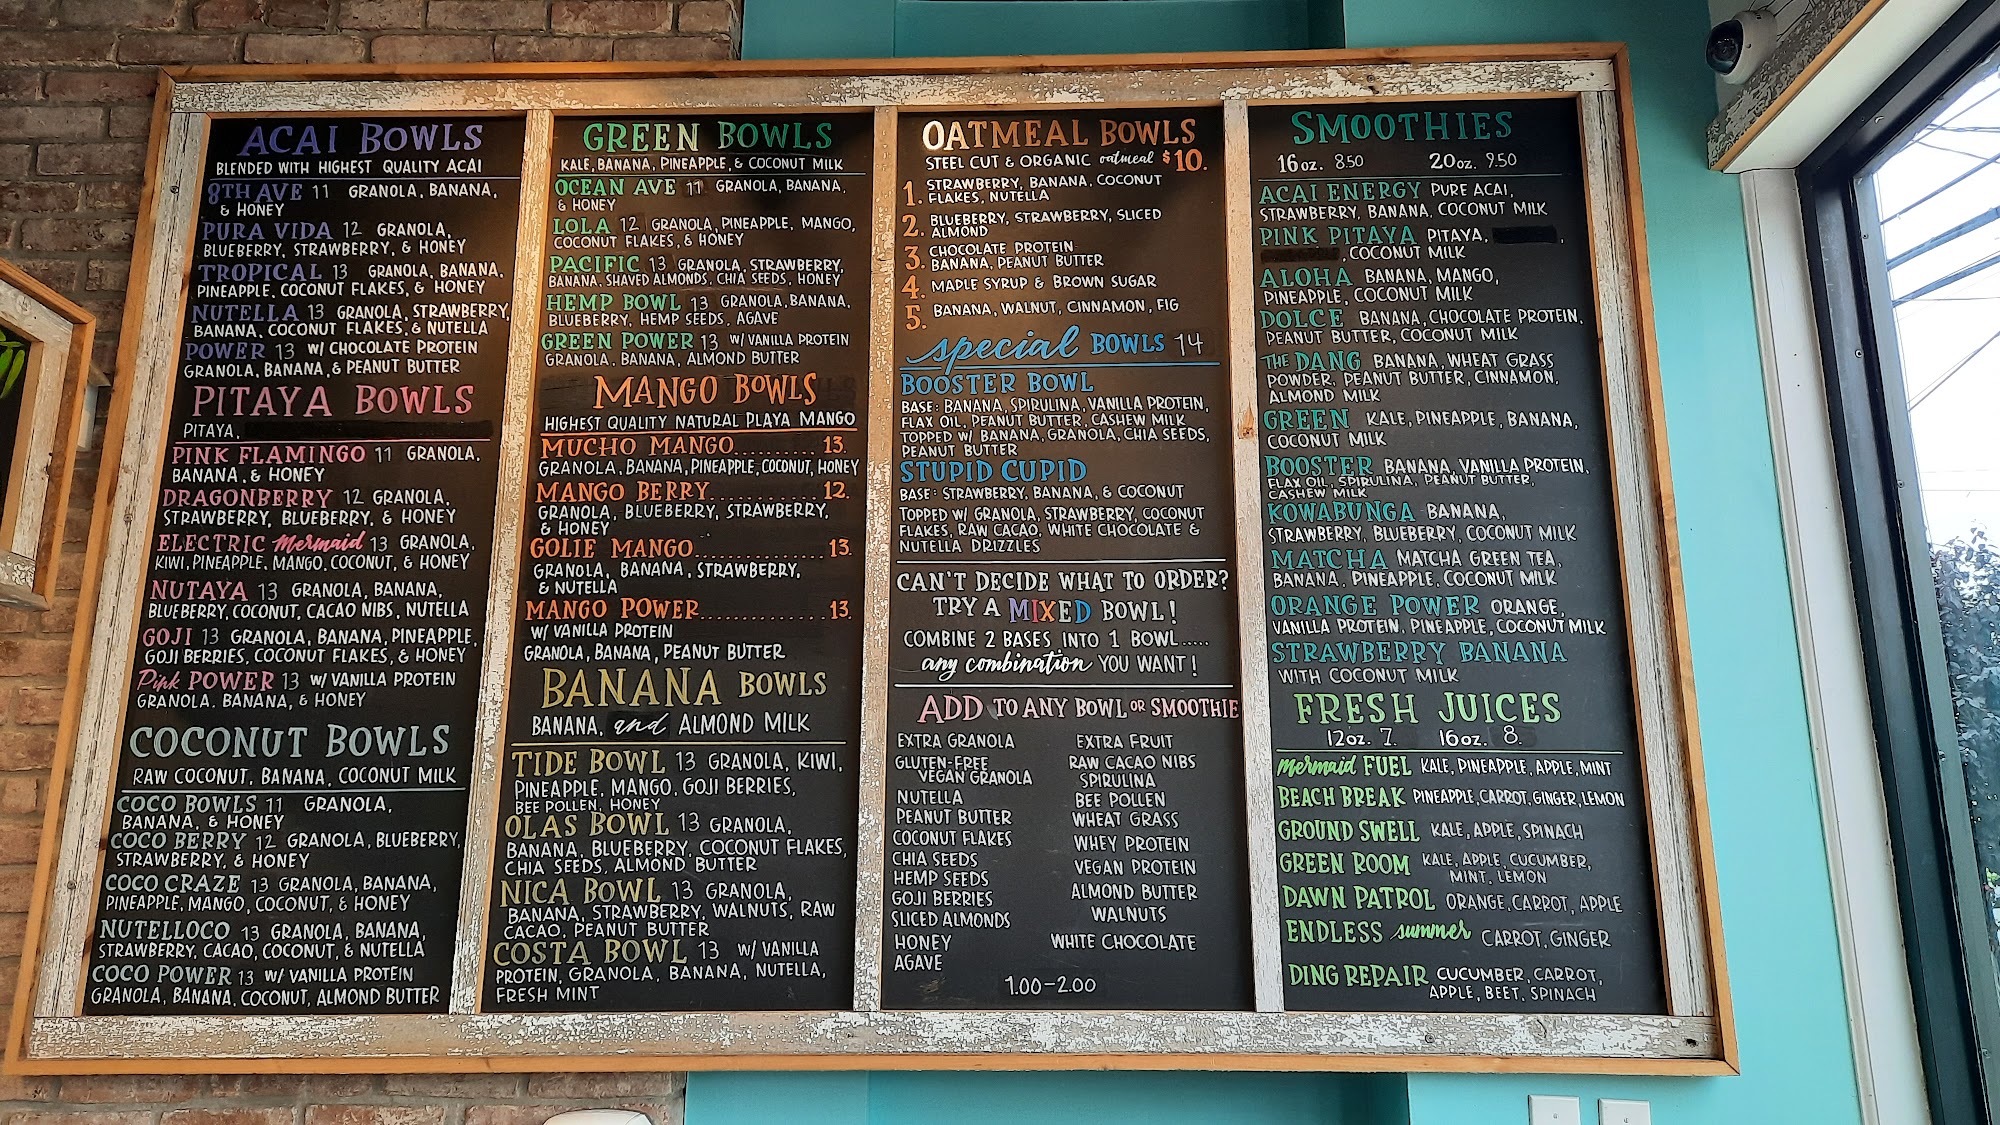 ACAI BOWLS
BLENDED WITH HIGHEST QUALITY ACAI
8TH AVE 11 GRANOLA, BANANA,
& HONEY
PURA VIDA 12 GRANOLA,
BLUEBERRY, STRAWBERRY, & HONEY
TROPICAL 13 GRANOLA, BANANA,
PINEAPPLE, COCONUT FLAKES, & HONEY
NUTELLA 13 GRANOLA, STRAWBERRY,
BANANA, COCONUT FLAKES, & NUTELLA
POWER 13 W/ CHOCOLATE PROTEIN
GRANOLA, BANANA, & PEANUT BUTTER
PITAYA BOWLS
PITAYA,
PINK FLAMINGO 11 GRANOLA,
BANANA, & HONEY
DRAGONBERRY 12 GRANOLA,
STRAWBERRY, BLUEBERRY, & HONEY
ELECTRIC Mermaid 13 GRANOLA,
KIWI, PINEAPPLE, MANGO, COCONUT, & HONEY
NUTAYA 13 GRANOLA, BANANA,
BLUEBERRY, COCONUT, CACAO NIBS, NUTELLA
GOJI 13 GRANOLA, BANANA, PINEAPPLE,
GOJI BERRIES, COCONUT FLAKES, & HONEY
Pink POWER 13 W/ VANILLA PROTEIN
GRANOLA, BANANA, & HONEY
COCONUT BOWLS
RAW COCONUT, BANANA, COCONUT MILK
COCO BOWLS 11 GRANOLA,
BANANA, & HONEY
COCO BERRY 12 GRANOLA, BLUEBERRY,
STRAWBERRY, & HONEY
COCO CRAZE 13 GRANOLA, BANANA,
PINEAPPLE, MANGO, COCONUT, & HONEY
NUTELLOCO 13 GRANOLA, BANANA,
STRAWBERRY, CACAO, COCONUT, & NUTELLA
COCO POWER 13 W/ VANILLA PROTEIN
GRANOLA, BANANA, COCONUT, ALMOND BUTTER
GREEN BOWLS
KALE, BANANA, PINEAPPLE, & COCONUT MILK
OCEAN AVE 11 GRANOLA, BANANA,
& HONEY
LOLA 12 GRANOLA, PINEAPPLE, MANGO,
COCONUT FLAKES, & HONEY
PACIFIC 13 GRANOLA, STRAWBERRY,
BANANA, SHAVED ALMONDS, CHIA SEEDS, HONEY
HEMP BOWL 13 GRANOLA, BANANA,
BLUEBERRY, HEMP SEEDS, AGAVE
GREEN POWER 13 W/ VANILLA PROTEIN
GRANOLA, BANANA, ALMOND BUTTER
MANGO BOWLS
HIGHEST QUALITY NATURAL PLAYA MANGO
MUCHO MANGO.......... 13.
GRANOLA, BANANA, PINEAPPLE, COCONUT, HONEY
MANGO BERRY............ 12.
GRANOLA, BLUEBERRY, STRAWBERRY,
& HONEY
GOLIE MANGO.............. 13.
GRANOLA, BANANA, STRAWBERRY,
& NUTELLA
MANGO POWER.............. 13.
W/ VANILLA PROTEIN
GRANOLA, BANANA, PEANUT BUTTER
BANANA BOWLS
BANANA, and ALMOND MILK
TIDE BOWL 13 GRANOLA, KIWI,
PINEAPPLE, MANGO, GOJI BERRIES,
BEE POLLEN, HONEY
OLAS BOWL 13 GRANOLA,
BANANA, BLUEBERRY, COCONUT FLAKES,
CHIA SEEDS, ALMOND BUTTER
NICA BOWL 13 GRANOLA,
BANANA, STRAWBERRY, WALNUTS, RAW
CACAO, PEANUT BUTTER
COSTA BOWL 13 W/ VANILLA
PROTEIN, GRANOLA, BANANA, NUTELLA,
FRESH MINT
OATMEAL BOWLS
STEEL CUT & ORGANIC oatmeal $10.
1. STRAWBERRY, BANANA, COCONUT
FLAKES, NUTELLA
2. BLUEBERRY, STRAWBERRY, SLICED
ALMOND
3. CHOCOLATE PROTEIN
BANANA, PEANUT BUTTER
4. MAPLE SYRUP & BROWN SUGAR
5. BANANA, WALNUT, CINNAMON, FIG
special BOWLS 14
BOOSTER BOWL
BASE: BANANA, SPIRULINA, VANILLA PROTEIN,
FLAX OIL, PEANUT BUTTER, CASHEW MILK
TOPPED W/ BANANA, GRANOLA, CHIA SEEDS,
PEANUT BUTTER
STUPID CUPID
BASE: STRAWBERRY, BANANA, & COCONUT
TOPPED W/ GRANOLA, STRAWBERRY, COCONUT
FLAKES, RAW CACAO, WHITE CHOCOLATE &
NUTELLA DRIZZLES
CAN'T DECIDE WHAT TO ORDER?
TRY A MIXED BOWL!
COMBINE 2 BASES INTO 1 BOWL.....
any combination YOU WANT!
ADD TO ANY BOWL OR SMOOTHIE
EXTRA GRANOLA
GLUTEN-FREE
VEGAN GRANOLA
NUTELLA
PEANUT BUTTER
COCONUT FLAKES
CHIA SEEDS
HEMP SEEDS
GOJI BERRIES
SLICED ALMONDS
HONEY
AGAVE
EXTRA FRUIT
RAW CACAO NIBS
SPIRULINA
BEE POLLEN
WHEAT GRASS
WHEY PROTEIN
VEGAN PROTEIN
ALMOND BUTTER
WALNUTS
WHITE CHOCOLATE
1.00-2.00
SMOOTHIES
16oz. 8.50 20oz. 9.50
ACAI ENERGY PURE ACAI,
STRAWBERRY, BANANA, COCONUT MILK
PINK PITAYA PITAYA, ,
, COCONUT MILK
ALOHA BANANA, MANGO,
PINEAPPLE, COCONUT MILK
DOLCE BANANA, CHOCOLATE PROTEIN,
PEANUT BUTTER, COCONUT MILK
THE DANG BANANA, WHEAT GRASS
POWDER, PEANUT BUTTER, CINNAMON,
ALMOND MILK
GREEN KALE, PINEAPPLE, BANANA,
COCONUT MILK
BOOSTER BANANA, VANILLA PROTEIN,
FLAX OIL, SPIRULINA, PEANUT BUTTER,
CASHEW MILK
KOWABUNGA BANANA,
STRAWBERRY, BLUEBERRY, COCONUT MILK
MATCHA MATCHA GREEN TEA,
BANANA, PINEAPPLE, COCONUT MILK
ORANGE POWER ORANGE,
VANILLA PROTEIN, PINEAPPLE, COCONUT MILK
STRAWBERRY BANANA
WITH COCONUT MILK
FRESH JUICES
12oz. 7. 16oz. 8.
Mermaid FUEL KALE, PINEAPPLE, APPLE, MINT
BEACH BREAK PINEAPPLE, CARROT, GINGER, LEMON
GROUND SWELL KALE, APPLE, SPINACH
GREEN ROOM KALE, APPLE, CUCUMBER,
MINT, LEMON
DAWN PATROL ORANGE, CARROT, APPLE
ENDLESS summer CARROT, GINGER
DING REPAIR CUCUMBER, CARROT,
APPLE, BEET, SPINACH